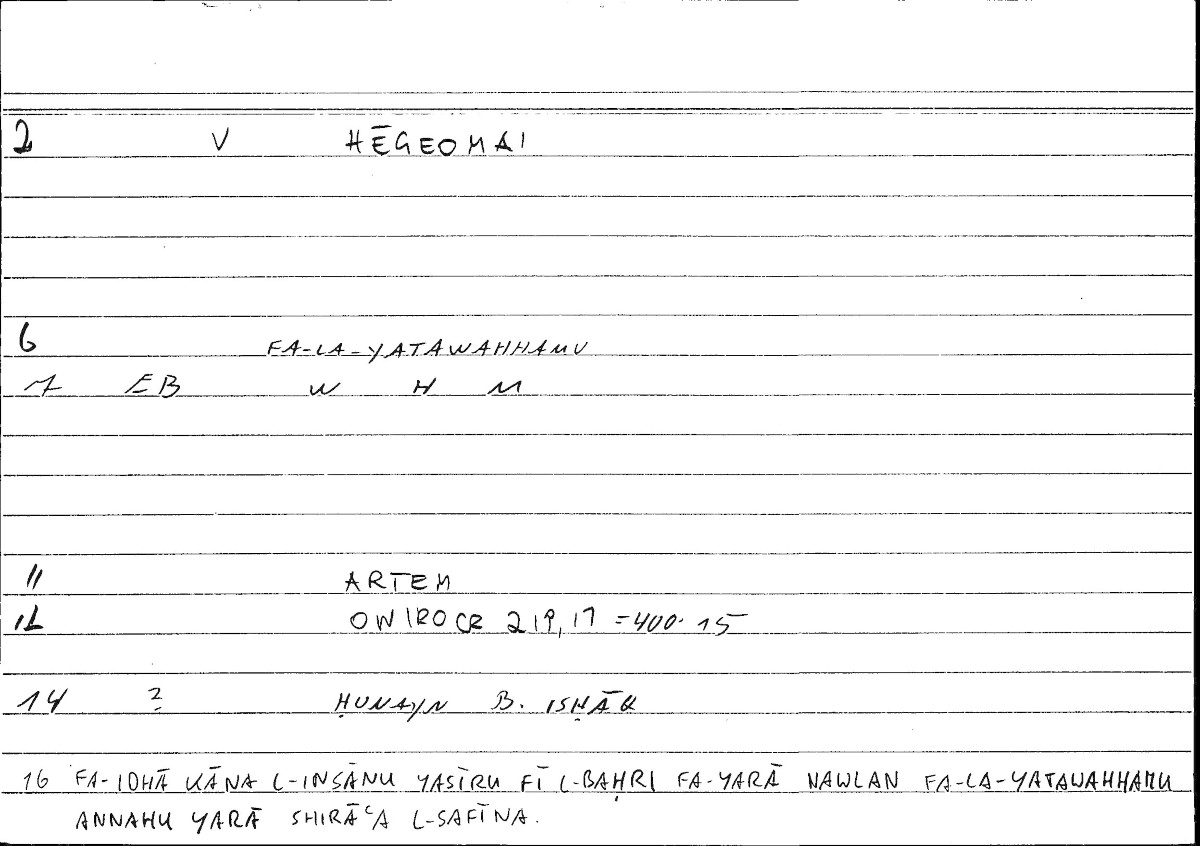 2 V HĒGEOMAI
6 FA-LA-YATAWAHHAMU
7 EB W H M
11 ARTEM
12 ONIROCR 219,17 =400.15
14 ? ḤUNAYN B. ISḤĀḲ
16 FA-IDHĀ KĀNA L-INSĀNU YASĪRU FĪ L-BAḤRI FA-YARĀ NAWLAN FA-LA-YATAWAHHAMU
ANNAHU YARĀ SHIRĀʿA L-SAFĪNA.